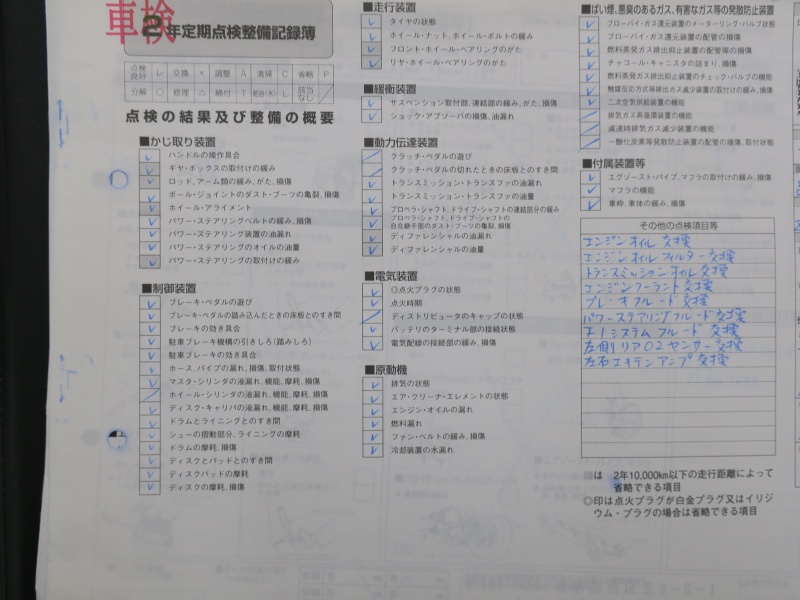 車検
2年定期点検整備記録簿
点検良好 レ 交換 × 調整 A 清掃 C 省略 P
分解 ○ 修理 △ 締付 T 給油(水) L 該当なし ／
点検の結果及び整備の概要
■かじ取り装置
ハンドルの操作具合
ギヤ・ボックスの取付けの緩み
ロッド、アーム類の緩み、がた、損傷
ボール・ジョイントのダスト・ブーツの亀裂、損傷
ホイール・アライメント
パワー・ステアリングベルトの緩み、損傷
パワー・ステアリング装置の油漏れ
パワー・ステアリングのオイルの油量
パワー・ステアリングの取付けの緩み
■制御装置
ブレーキ・ペダルの遊び
ブレーキ・ペダルの踏み込んだときの床板とのすき間
ブレーキの効き具合
駐車ブレーキ機構の引きしろ(踏みしろ)
駐車ブレーキの効き具合
ホース、パイプの漏れ、損傷、取付状態
マスタ・シリンダの液漏れ、機能、摩耗、損傷
ホイール・シリンダの液漏れ、機能、摩耗、損傷
ディスク・キャリパの液漏れ、機能、摩耗、損傷
ドラムとライニングとのすき間
シューの摺動部分、ライニングの摩耗
ドラムの摩耗、損傷
ディスクとパッドとのすき間
ディスクパッドの摩耗
ディスクの摩耗、損傷
■走行装置
タイヤの状態
ホイール・ナット、ホイール・ボルトの緩み
フロント・ホイール・ベアリングのがた
リヤ・ホイール・ベアリングのがた
■緩衝装置
サスペンション取付部、連結部の緩み、がた、損傷
ショック・アブソーバの損傷、油漏れ
■動力伝達装置
クラッチ・ペダルの遊び
クラッチ・ペダルの切れたときの床板とのすき間
トランスミッション・トランスファの油漏れ
トランスミッション・トランスファの油量
プロペラ・シャフト、ドライブ・シャフトの連結部分の緩み
プロペラ・シャフト、ドライブ・シャフトの
自在継手部のダスト・ブーツの亀裂、損傷
ディファレンシャルの油漏れ
ディファレンシャルの油量
■電気装置
◎点火プラグの状態
点火時期
ディストリビュータのキャップの状態
バッテリのターミナル部の接続状態
電気配線の接続部の緩み、損傷
■原動機
排気の状態
エア・クリーナ・エレメントの状態
エンジン・オイルの漏れ
燃料漏れ
ファン・ベルトの緩み、損傷
冷却装置の水漏れ
■ばい煙、悪臭のあるガス、有害なガス等の発散防止装置
ブローバイ・ガス還元装置のメーターリング・バルブ状態
ブローバイ・ガス還元装置の配管の損傷
燃料蒸発ガス排出抑止装置の配管等の損傷
チャコール・キャニスタの詰まり、損傷
燃料蒸発ガス排出抑止装置のチェック・バルブの機能
触媒反応方式等排出ガス減少装置の取付の緩み、損傷
二次空気供給装置の機能
排気ガス再循環装置の機能
減速時排気ガス減少装置の機能
一酸化炭素等発散防止装置の配管の損傷、取付状態
■付属装置等
エグゾースト・パイプ、マフラの取付けの緩み、損傷
マフラの機能
車枠、車体の緩み、損傷
その他の点検項目等
エンジンオイル 交換
エンジンオイルフィルター 交換
トランスミッションオイル 交換
エンジンクーラント 交換
ブレーキフルード 交換
パワーステアリングフルード 交換
システムフルード 交換
左側リアO2センサー 交換
左右エキテンアンプ 交換
は 2年10,000km以下の走行距離によって
省略できる項目
◎印は点火プラグが白金プラグ又はイリジ
ウム・プラグの場合は省略できる項目